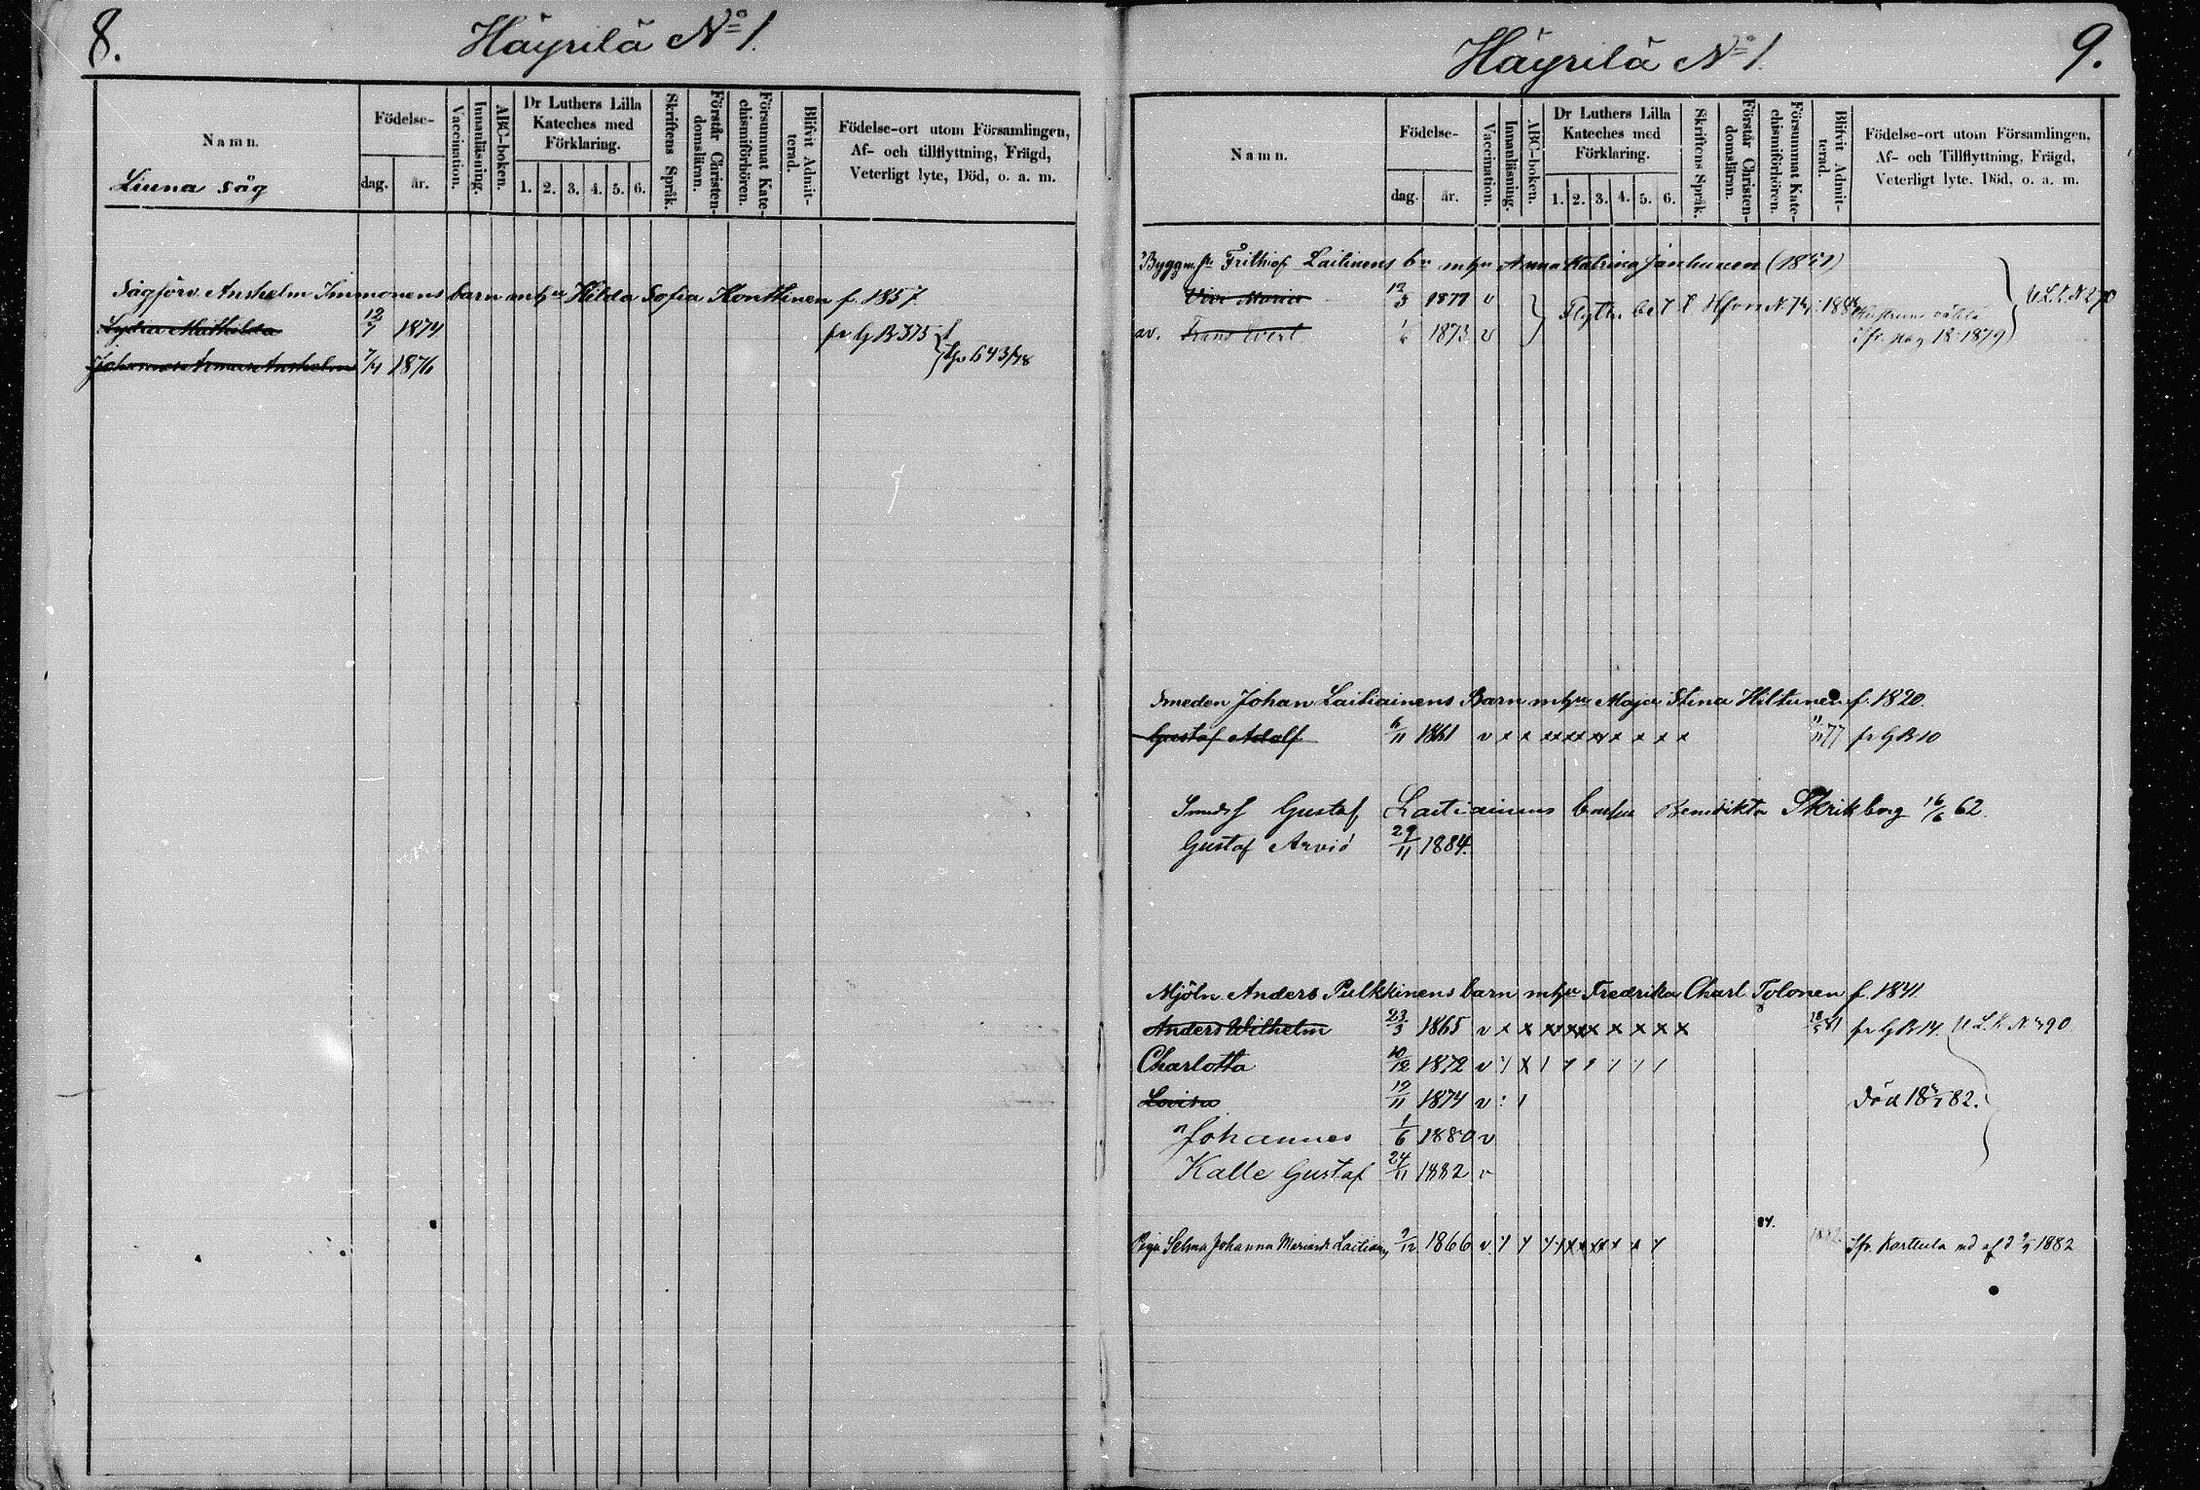 8.
Häyrilä No 1.
Namn.
Födelse-
dag.
år.
Vaccination.
Innanläsning.
ABC-boken.
Dr Luthers Lilla Kateches med Förklaring.
1. 2. 3. 4. 5. 6.
Skriftens Språk.
Förstår Christendomsläran.
Försummat Katechismiförhören.
Blifvit Admitterad.
Födelse-ort utom Församlingen,
Af- och tillflyttning, Frägd,
Veterligt lyte, Död, o. a. m.
Liuna såg
Sågförv. Anshelm Immonens barn mhu Hilda Sofia Konttinen f. 1857.
Lydia Mathilda 12/7 1874 fr G B 375
Johannes Armas Anshelm 7/4 1876 643/78
Häyrilä No 1.
9.
Namn.
Födelse-
dag.
år.
Vaccination.
Innanläsning.
ABC-boken.
Dr Luthers Lilla Kateches med Förklaring.
1. 2. 3. 4. 5. 6.
Skriftens Språk.
Förstår Christendomsläran.
Försummat Katechismiförhören.
Blifvit Admitterad.
Födelse-ort utom Församlingen,
Af- och Tillflyttning, Frägd,
Veterligt lyte, Död, o. a. m.
Byggm. Frithiof Laitinens bn mhu Anna Katrina Janhunen
Maria 1877 v
av. Frans Evert 1/6 1873 v pag 18 1879
Smeden Johan Laitiainens Barn mhu Maja Stina Hiltunen f. 1820.
Gustaf Adolf 6/11 1861 v x x xx xx xx x x x x 77 fr G B 10
Gustaf Laitiainens Benedikta 16/6 62.
Gustaf Arvid 29/11 1884.
Mjöln. Anders Pulkkinens barn mhu Fredrika Charl. Tolonen f. 1841.
Anders Wilhelm 23/3 1865 v x x xx xxx x x x x x 81 fr G B 14. U L K N 390
Charlotta 10/12 1872 v
Lovisa 19/11 1874 v Död 82.
Johannes 1/6 1880 v
Kalle Gustaf 24/11 1882 v
84.
Piga Selma Johanna 9/12 1866 v 1882 Ifr. Karttula 1882